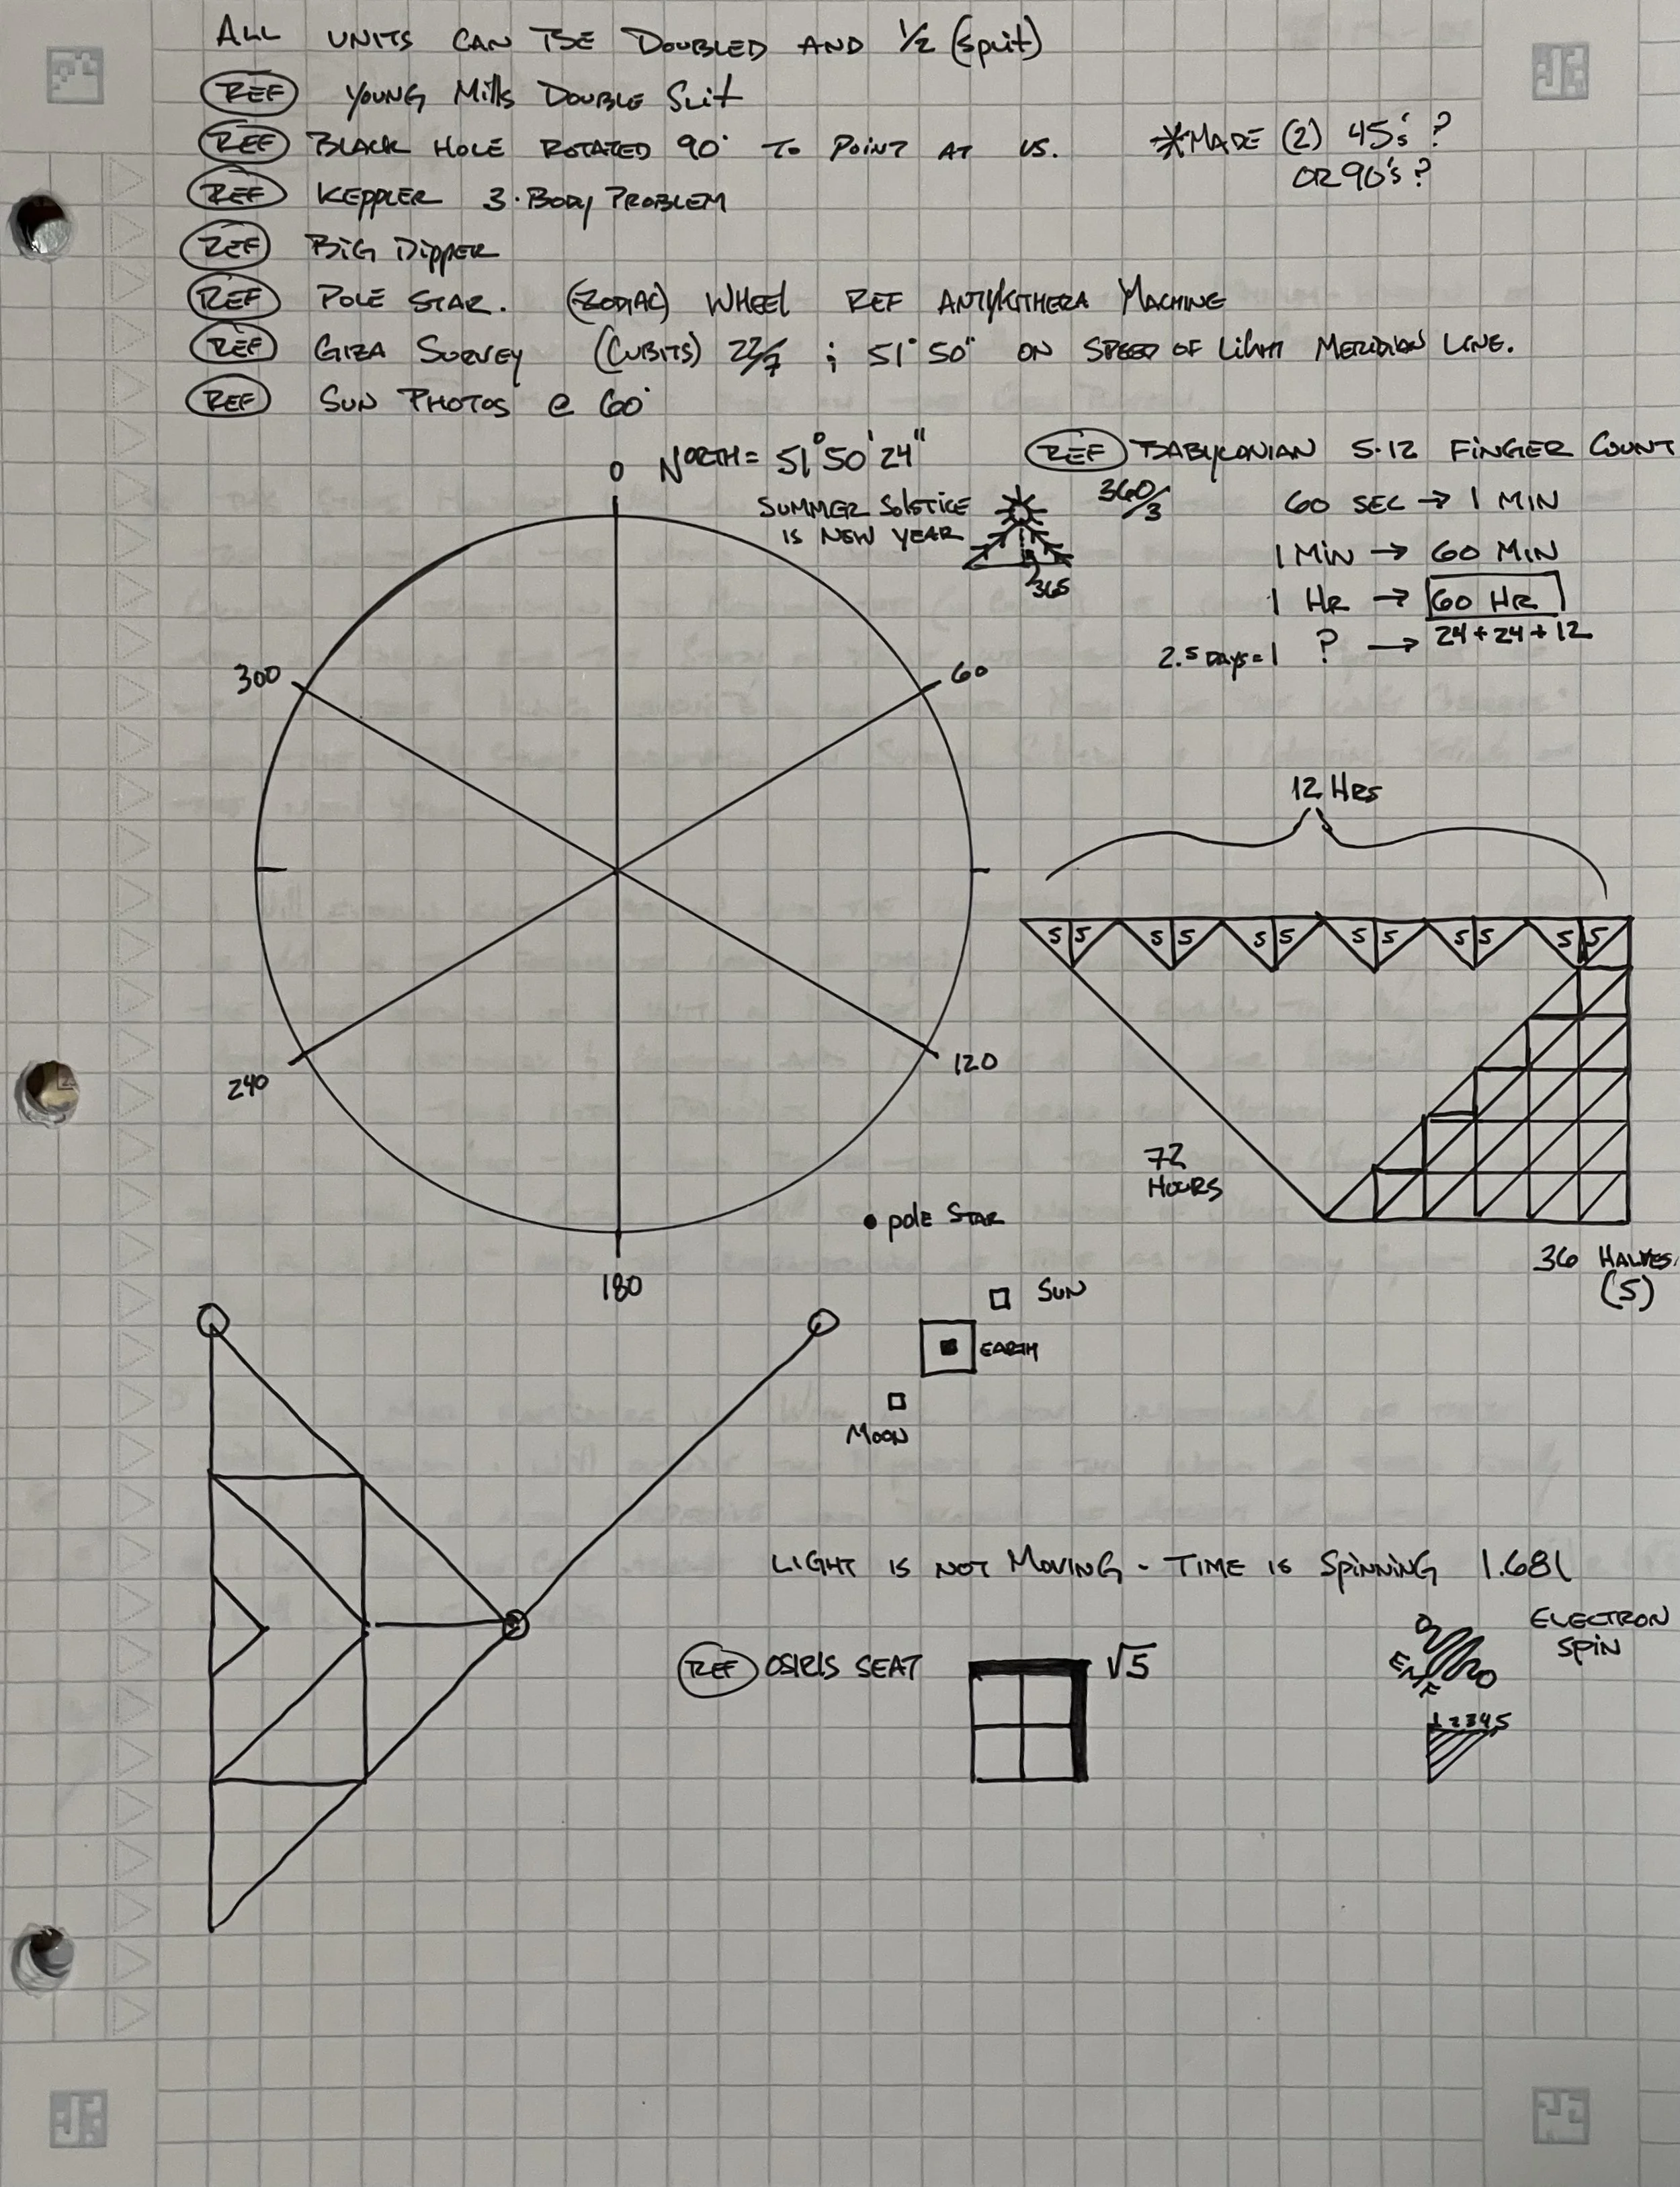 ALL UNITS CAN BE DOUBLED AND 1/2 (split)
REF YOUNG Mills DOUBLE SLIT
REF BLACK HOLE ROTATED 90° TO POINT AT US.
*MADE (2) 45's?
OR 90's?
REF KEPPLER 3·BODY PROBLEM
REF BIG DIPPER
REF POLE STAR. (ZODIAC) WHEEL REF ANTYKITHERA MACHINE
REF GIZA SURVEY (CUBITS) 22/7 ; 51° 50" ON SPEED OF LIGHT MERIDIAN LINE.
REF SUN PHOTOS @ 60°
0 NORTH = 51° 50' 24"
SUMMER SOLSTICE
IS NEW YEAR
365
REF BABYLONIAN 5·12 FINGER COUNT
360/3
60 SEC → 1 MIN
1 MIN → 60 MIN
1 HR → 60 HR
2.5 DAYS = 1 ? → 24 + 24 + 12
300
60
240
120
180
12 HRS
5 5 5 5 5 5 5 5 5 5 5 5
72
HOURS
36 HALVES
(5)
pole STAR
SUN
EARTH
MOON
LIGHT IS NOT MOVING - TIME IS SPINNING 1.681
REF OSIRIS SEAT
√5
ELECTRON
SPIN
EMF
1 2 3 4 5